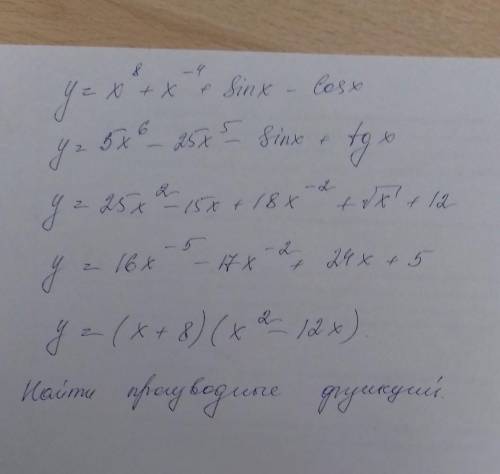 y = x⁸ + x⁻⁴ + sinx - cosx
y = 5x⁶ - 25x⁵ - sinx + tgx
y = 25x² - 15x + 18x⁻² + √x + 12
y = 16x⁻⁵ - 17x⁻² + 24x + 5
y = (x + 8)(x² - 12x).
Найти производные функций.